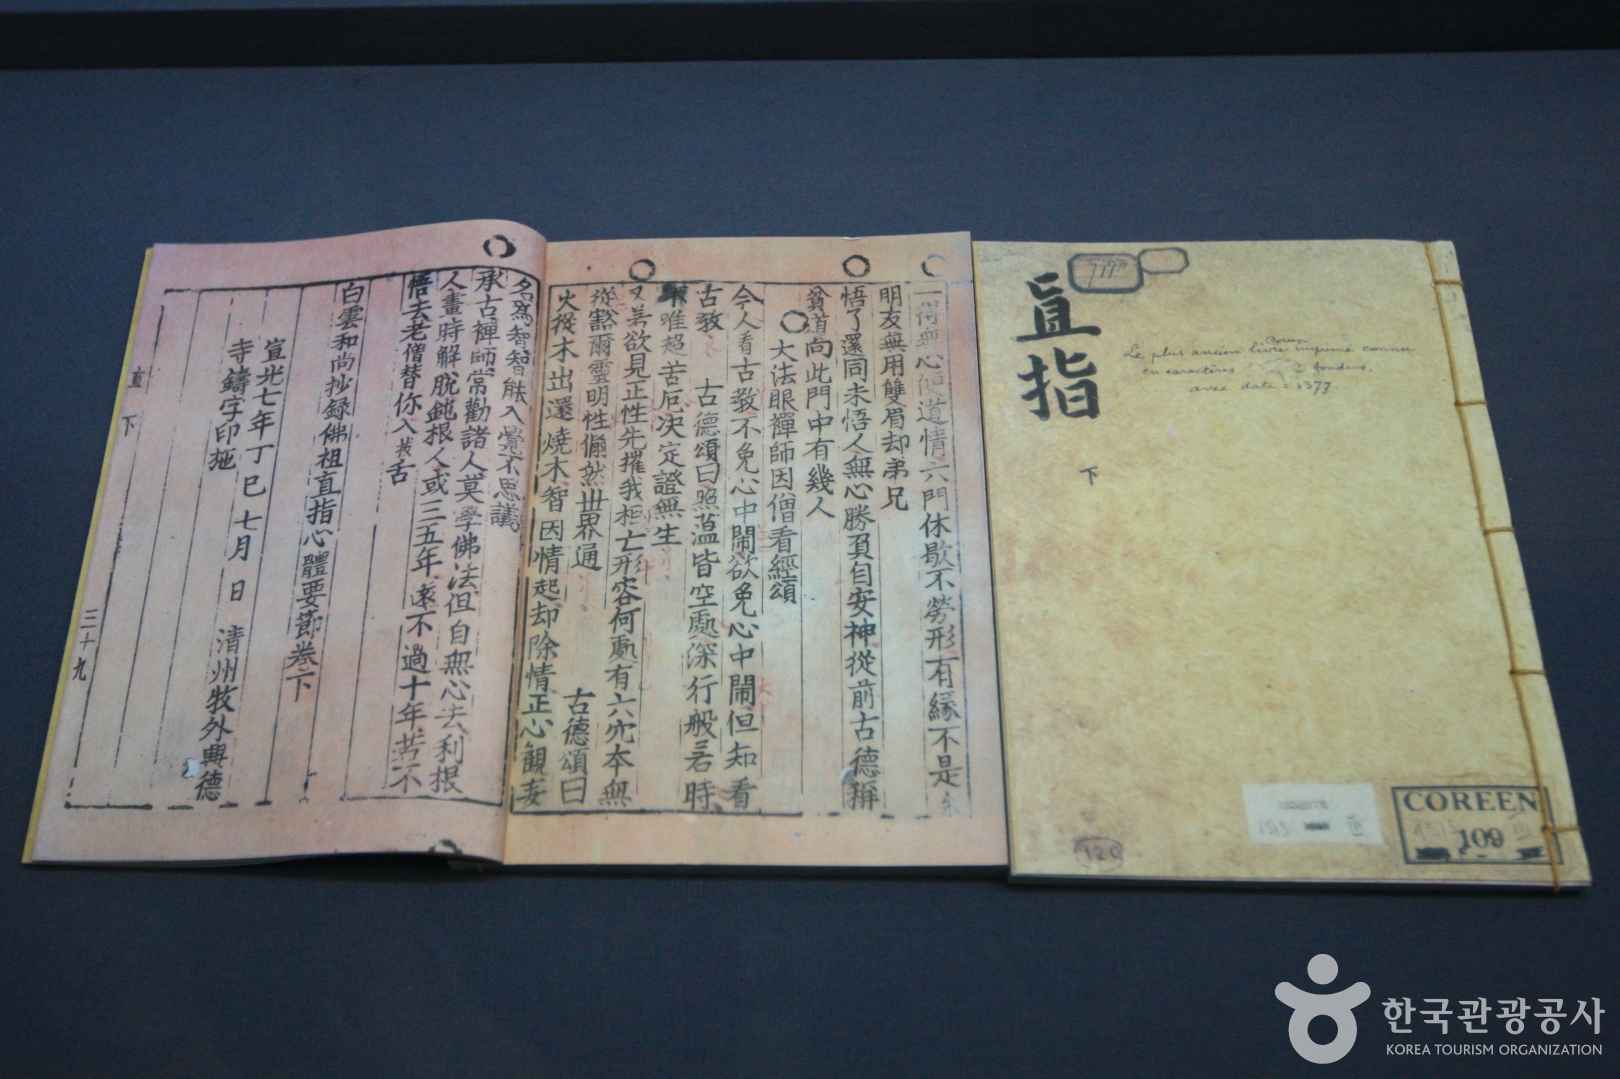 一得無心便道情六門休歇不勞形有緣不是
明友無用雙眉却弟兄
悟了還同未悟人無心勝負自安神從前古德稱
貧道向此門中有幾人
大法眼禪師因僧看經頌
今人看古教不免心中鬧欲免心中鬧但知看
古教 古德頌曰照蘊皆空處深行般若時
唯超苦厄決定證無生
又 若欲見正性先摧我相亡形容何處有六穴本無
從豁爾靈明性儼然世界通 古德頌曰
火從木出還燒木智因情起却除情正心觀妄
名爲智智能入覺不思議
承古禪師常勸諸人莫學佛法但自無心去利根
人畫時解脫鈍根人或三五年遠不過十年若不
悟去老僧替你入拔舌
白雲和尚抄錄佛祖直指心體要節卷下
宣光七年丁巳七月 日 清州牧外興德
寺鑄字印施
直 下 三十九
直指
下
Le plus ancien livre imprimé connu
en caractères fondus,
avec date = 1377
COREEN
109
한국관광공사
KOREA TOURISM ORGANIZATION